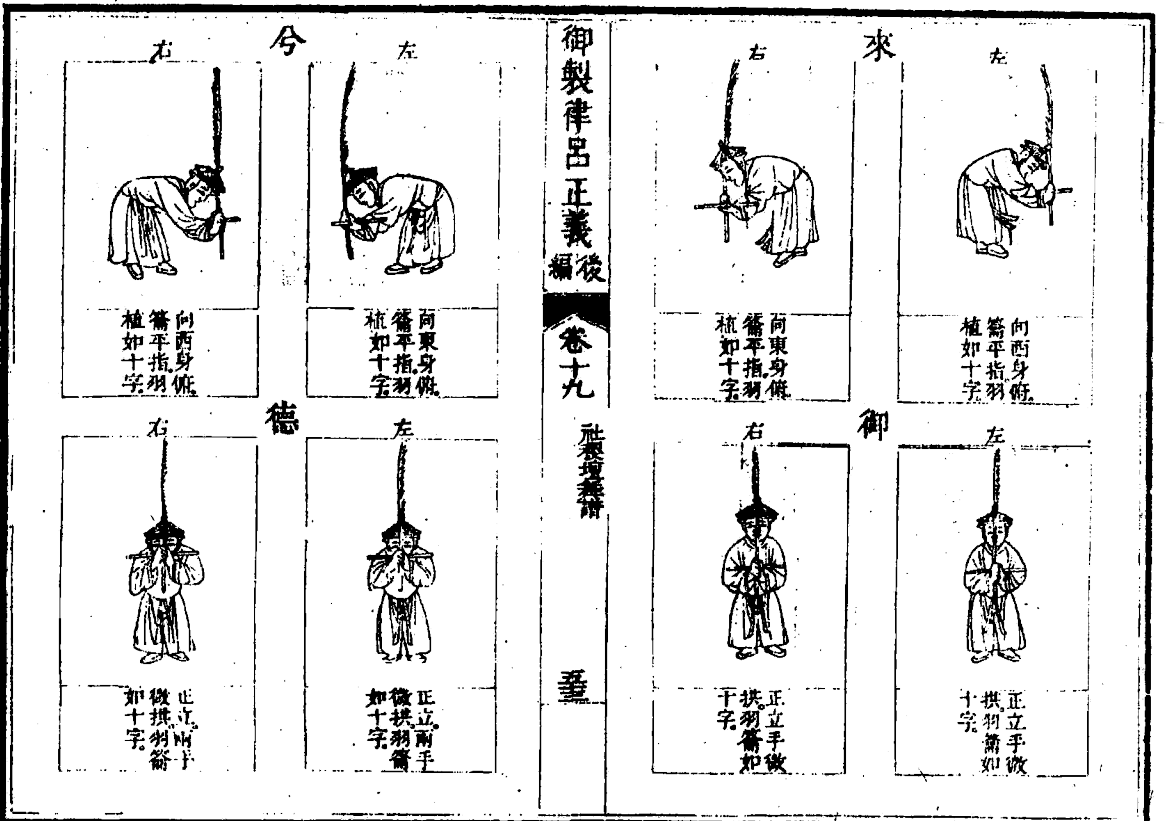 來
左
向西身俯
籥平指羽
植如十字
右
向東身俯
籥平指羽
植如十字
御
左
正立手微
拱羽籥如
十字
右
正立手微
拱羽籥如
十字
御製律呂正義後編
卷十九
社稷壇舞譜
兮
左
向東身俯
籥平指羽
植如十字
右
向西身俯
籥平指羽
植如十字
德
左
正立兩手
微拱羽籥
如十字
右
正立兩手
微拱羽籥
如十字